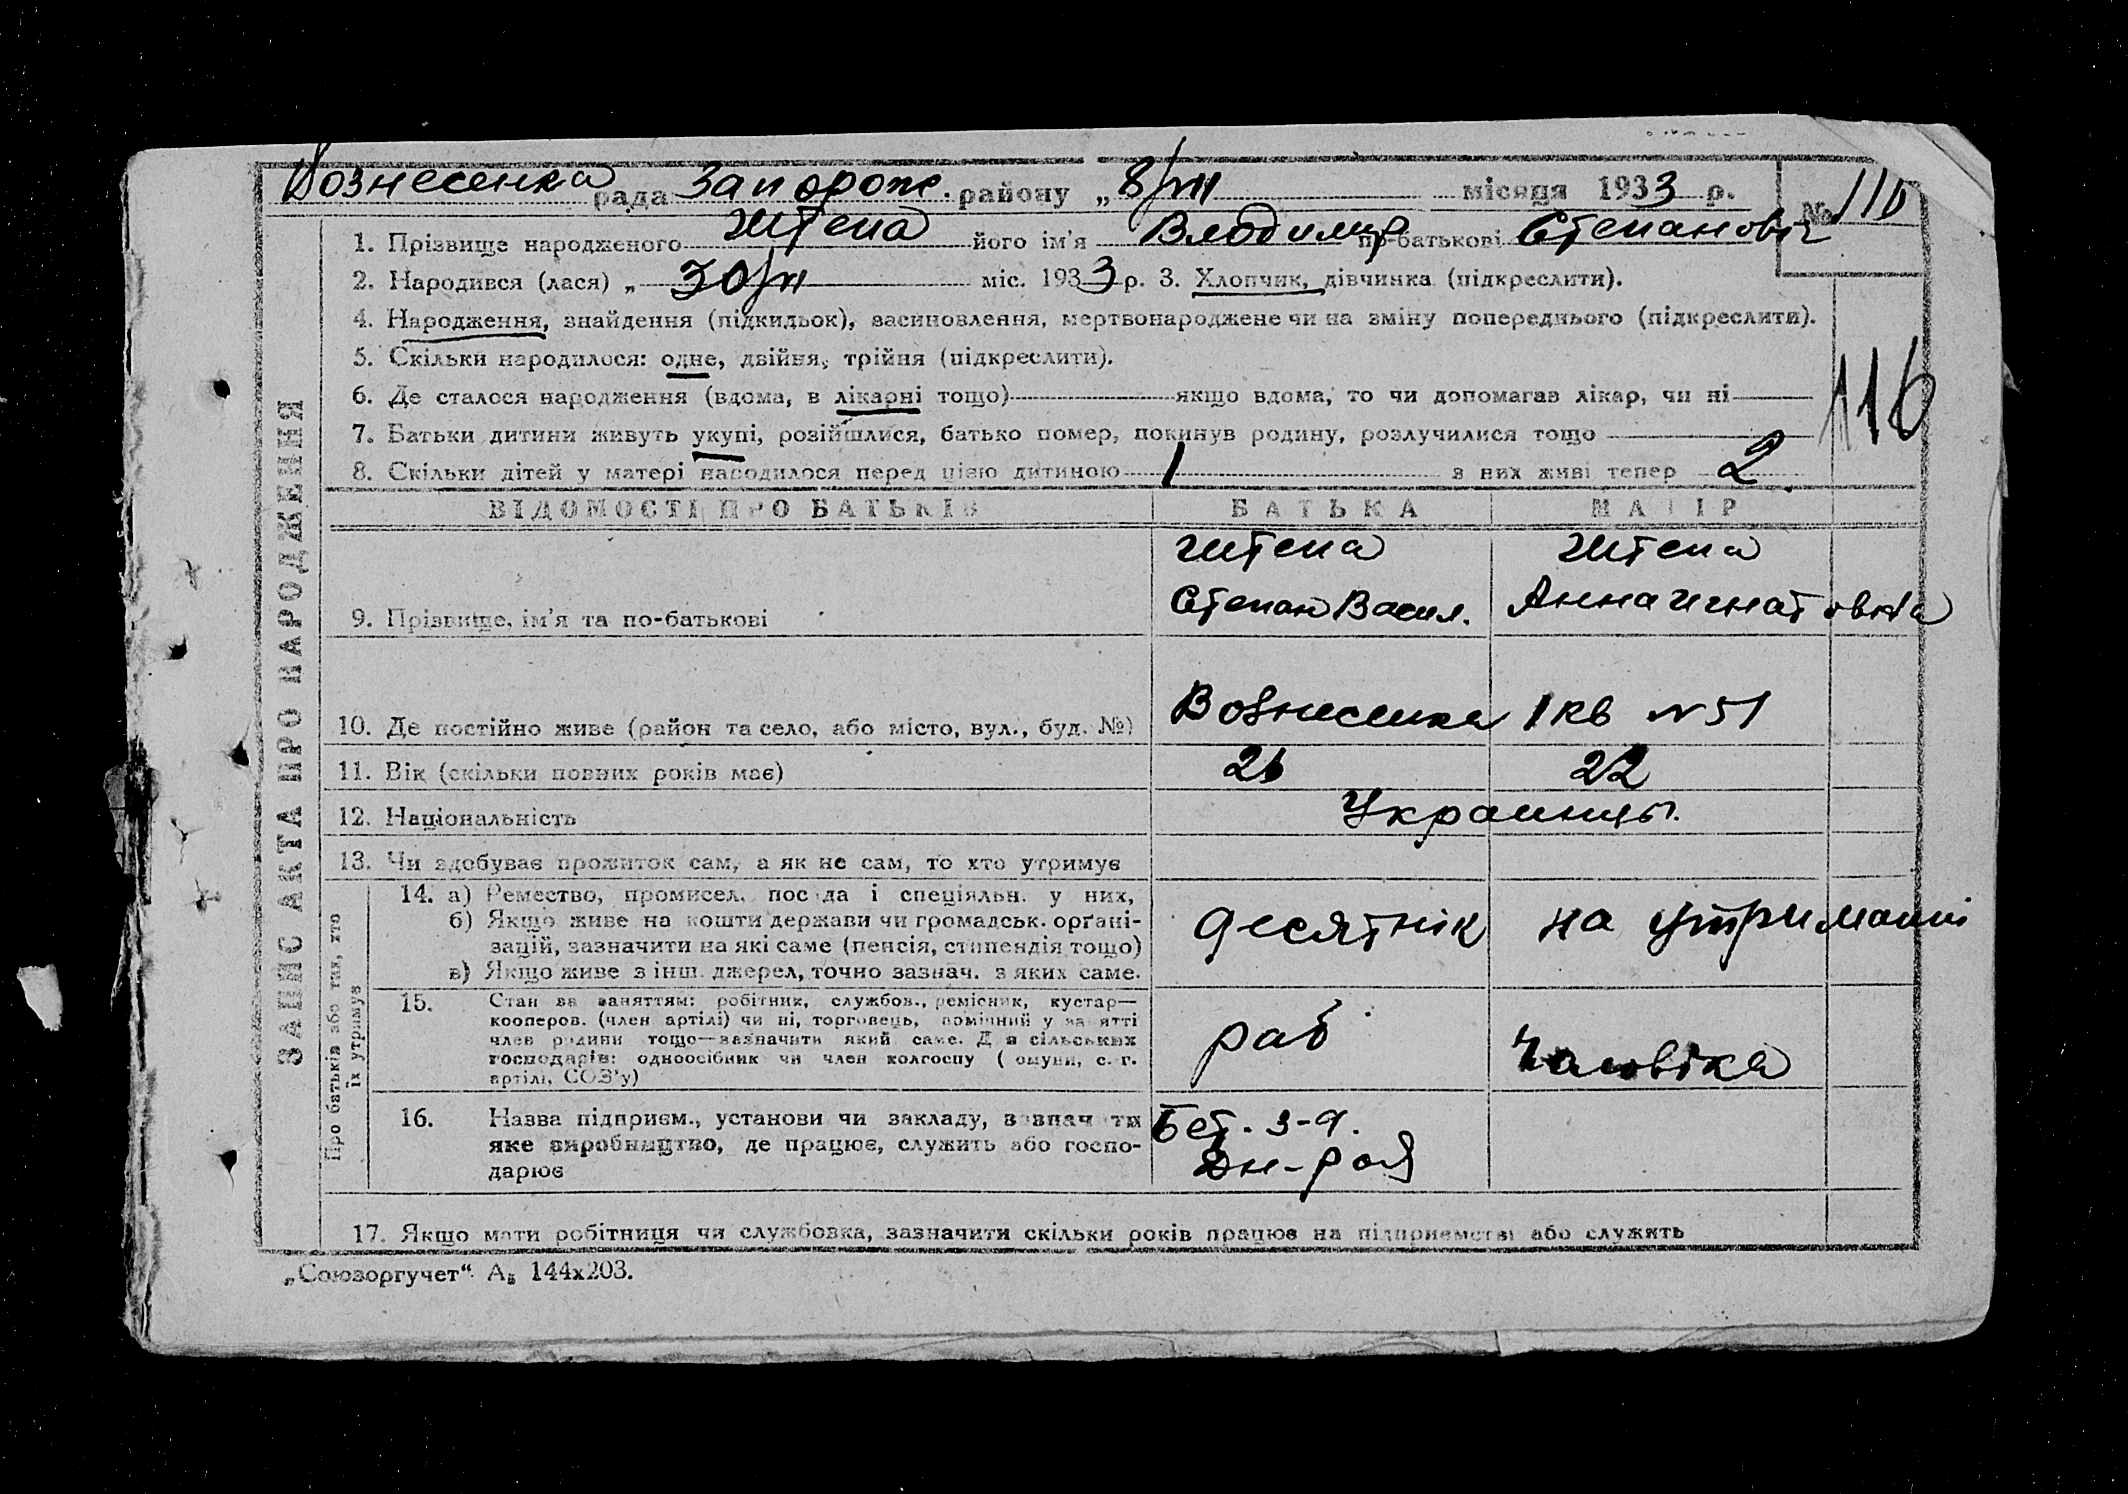 Вознесенка рада Запорож. району „ 8/VIII місяця 1933 р. № 116
1. Прізвище народженого Штепа його ім'я Владимир по-батькові Степановіч
2. Народився (лася) „ 30/VI міс. 1933 р. 3. Хлопчик, дівчинка (підкреслити).
4. Народження, знайдення (підкидьок), засиновлення, мертвонароджене чи на зміну попереднього (підкреслити).
5. Скільки народилося: одне, двійня, трійня (підкреслити).
6. Де сталося народження (вдома, в лікарні тощо) якщо вдома, то чи допомагав лікар, чи ні
116
7. Батьки дитини живуть укупі, розійшлися, батько помер, покинув родину, розлучилися тощо
8. Скільки дітей у матері народилося перед цією дитиною 1 з них живі тепер 2
ЗАПИС АКТА ПРО НАРОДЖЕННЯ
ВІДОМОСТІ ПРО БАТЬКІВ БАТЬКА МАТІР
Штепа Штепа
9. Прізвище, ім'я та по-батькові Степан Васил. Анна Игнатовна
10. Де постійно живе (район та село, або місто, вул., буд. №) Вознесенка 1 кв № 51
11. Вік (скільки повних років має) 26 22
12. Національність Украинцы.
13. Чи здобуває прожиток сам, а як не сам, то хто утримує
Про батьків або тих, хто
їх утримує
14. а) Ремество, промисел, посада і спеціяльн. у них,
б) Якщо живе на кошти держави чи громадськ. орґані-
зацій, зазначити на які саме (пенсія, стипендія тощо)
в) Якщо живе з інш. джерел, точно зазнач. з яких саме.
десятнік на утриманні
15. Стан за заняттям: робітник, службов., ремісник, кустар—
кооперов. (член артілі) чи ні, торговець, помічний у занятті
член родини тощо—зазначити який саме. Для сільських
господарів: одноосібник чи член колгоспу (комуни, с.-г.
артілі, СОЗ'у)
раб чаловіка
16. Назва підприєм., установи чи закладу, зазначити
яке виробництво, де працює, служить або госпо-
дарює
Бет. з-д.
17. Якщо мати робітниця чи службовка, зазначити скільки років працює на підприємстві або служить
„Союзоргучет“ А₅ 144х203.